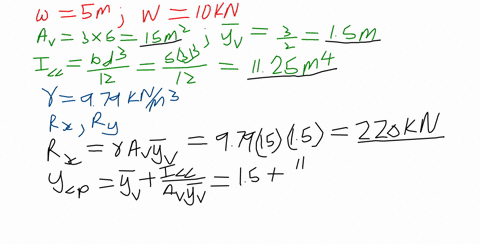 ω = 5m ; W = 10KN
A_v = 3×5 = 15m² ; ȳ_v = 3/2 = 1.5m
I_cc = bd³/12 = 5(3)³/12 = 11.25m⁴
γ = 9.79 KN/m³
R_x , R_y
R_x = γ A_v ȳ_v = 9.79(15)(1.5) = 220KN
y_cp = ȳ_v + I_cc/A_v ȳ_v = 1.5 + 11